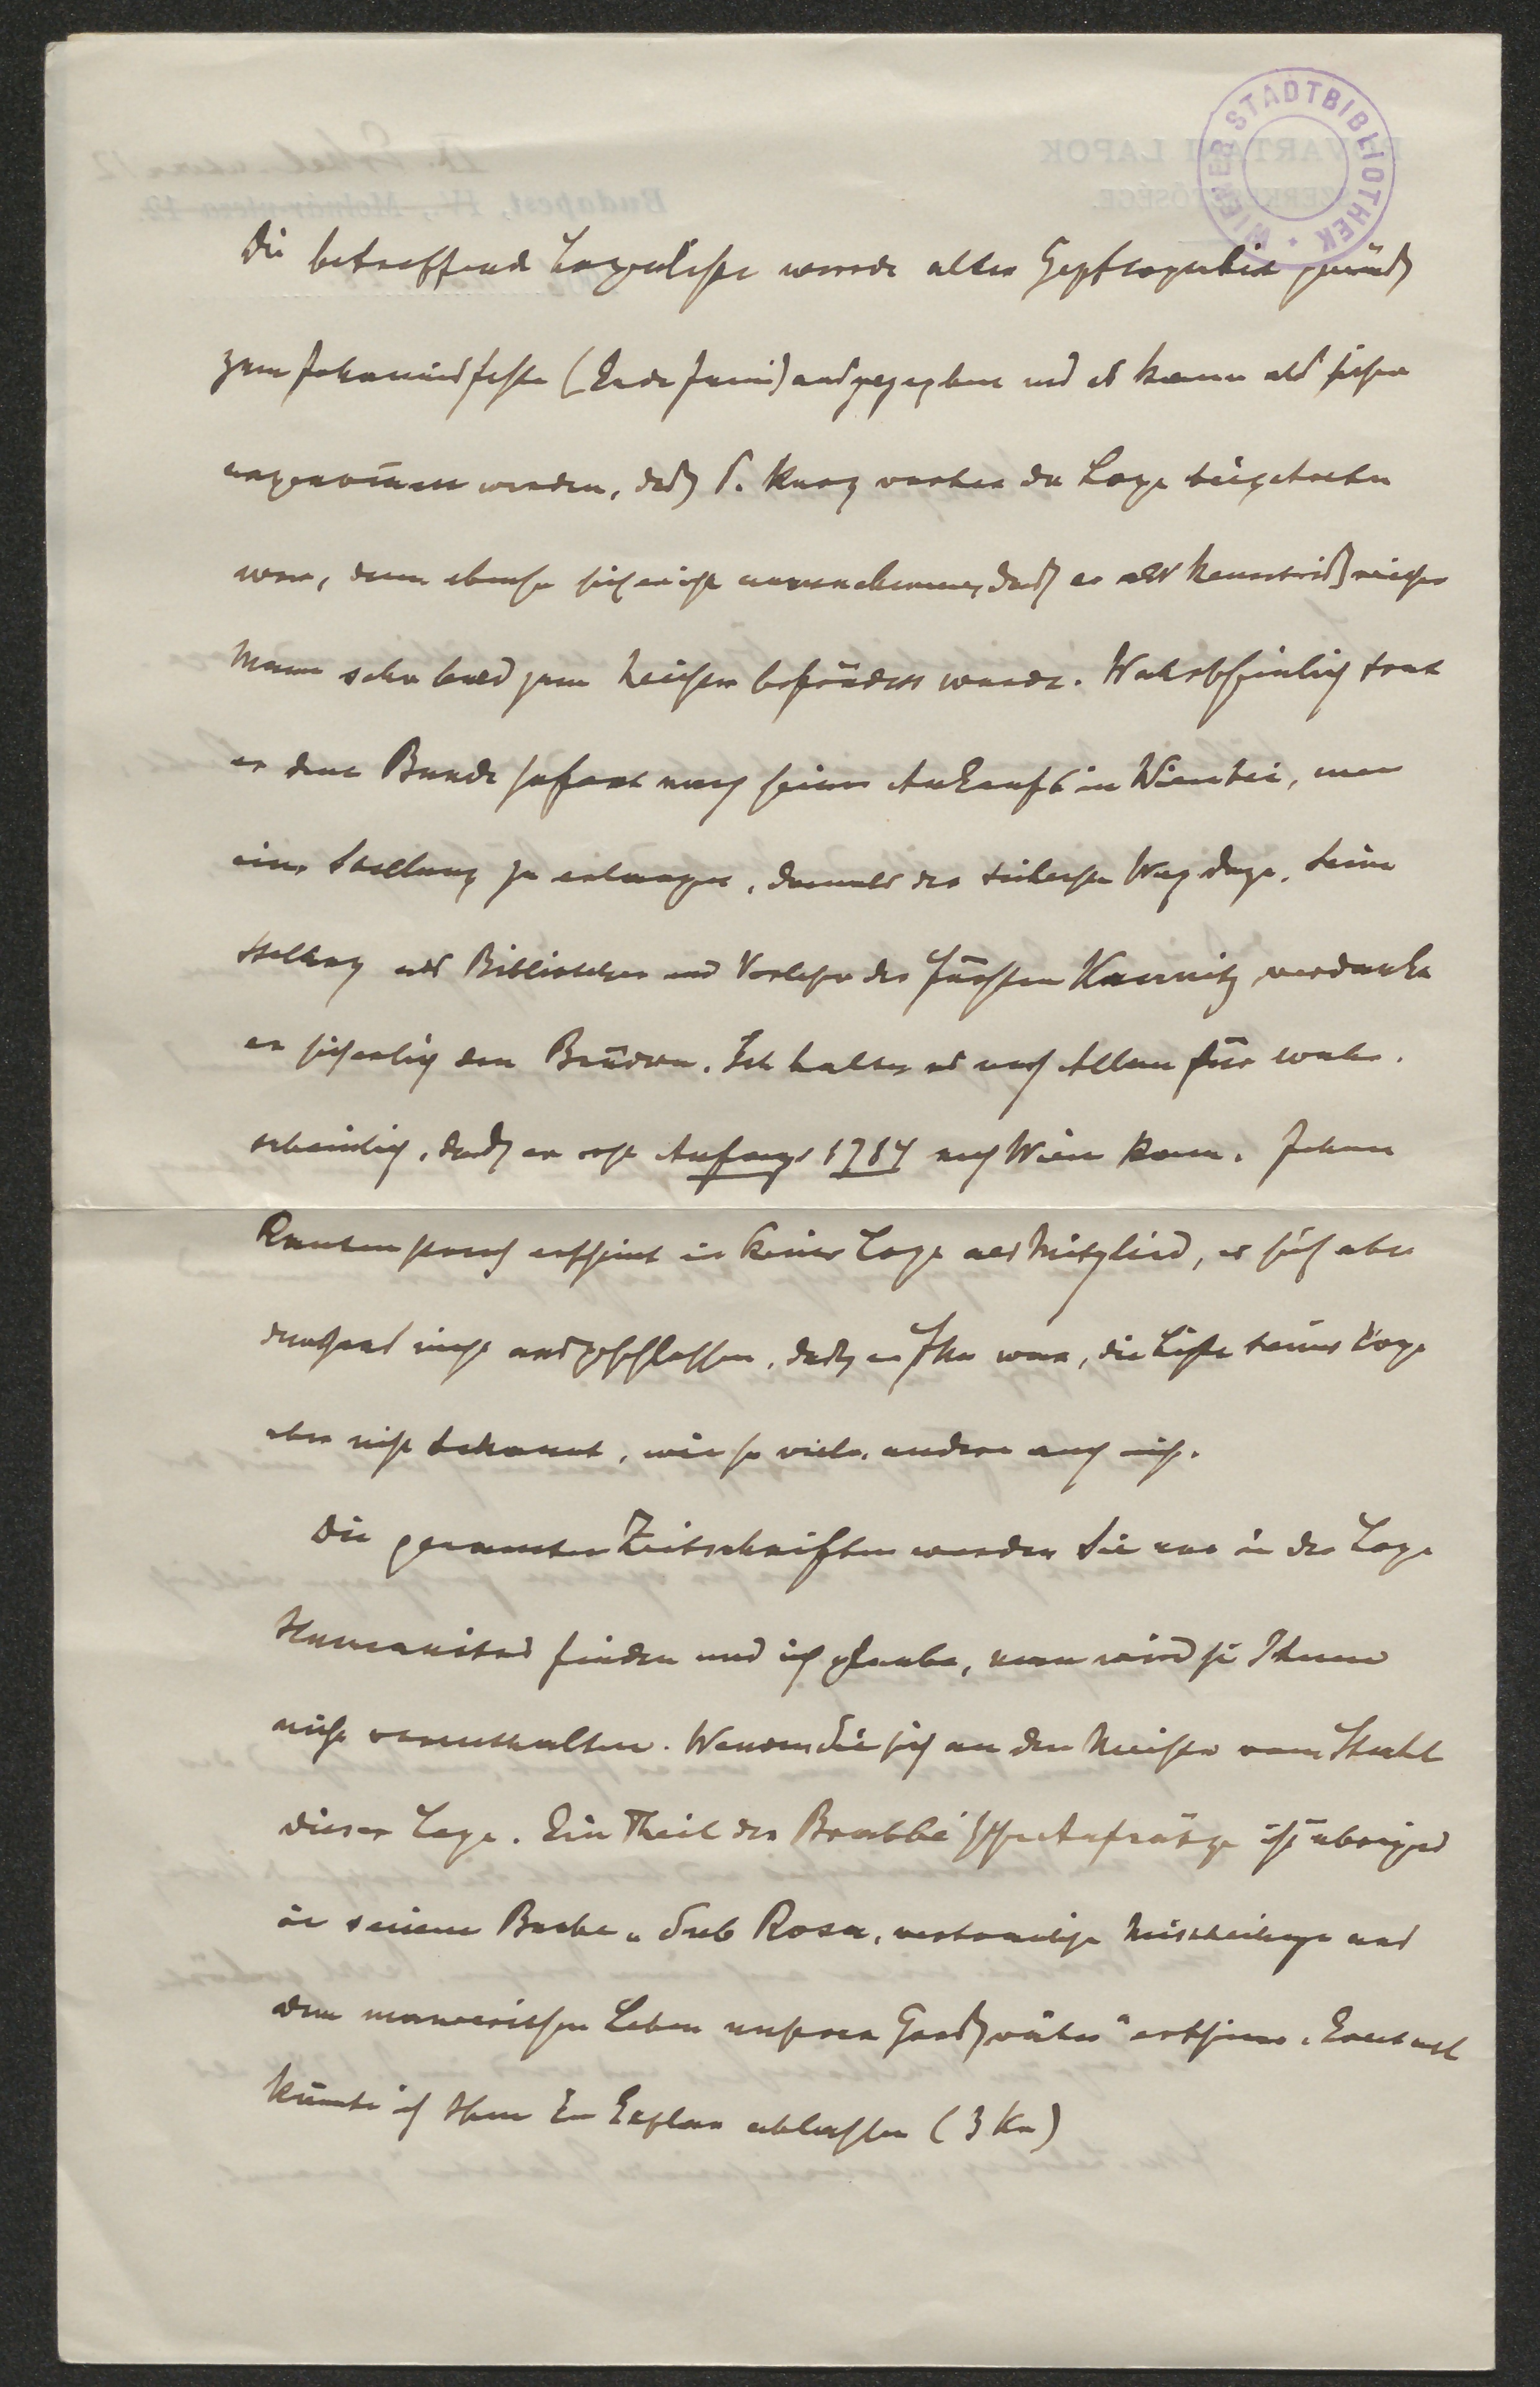 WIENER STADTBIBLIOTHEK
Die betreffende Logenliste wurde alter Gepflogenheit gemäß
zum Johannisfeste (Ende Juni) ausgegeben und es kann als sicher
angenommen werden, daß S. kurz vorher der Loge beigetreten
war, denn ebenso sicher ist anzunehmen, daß er als kenntnißreicher
Mann sehr bald zum Meister befördert wurde. Wahrscheinlich trat
er dem Bunde sofort nach seiner Ankunft in Wien bei, um
eine Stellung zu erlangen, damals der sicherste Weg dazu. Seine
Stellung als Bibliothekar und Vorleser des Fürsten Kaunitz verdankte
er sicherlich den Brüdern. Ich halte es nach Allem für wahr-
scheinlich, daß er erst Anfangs 1784 nach Wien kam. Johann
Rautenstrauch erscheint in keiner Loge als Mitglied, es ist aber
durchaus nicht ausgeschlossen, daß er Frm war, die Liste seiner Loge
aber nicht bekannt, wie so viele andere auch nicht.
Die genannten Zeitschriften werden Sie nur in der Loge
Humanitas finden und ich glaube, man wird sie Ihnen
nicht vorenthalten. Wenden Sie sich an den Meister vom Stuhl
dieser Loge. Ein Theil der Brabbée'schen Aufsätze ist übrigens
in seinem Buche „Sub Rosa, vertrauliche Mittheilungen aus
dem maurerischen Leben unserer Großväter" erschienen. Eventuell
könnte ich Ihnen Ein Explar ablassen (3 Kr)